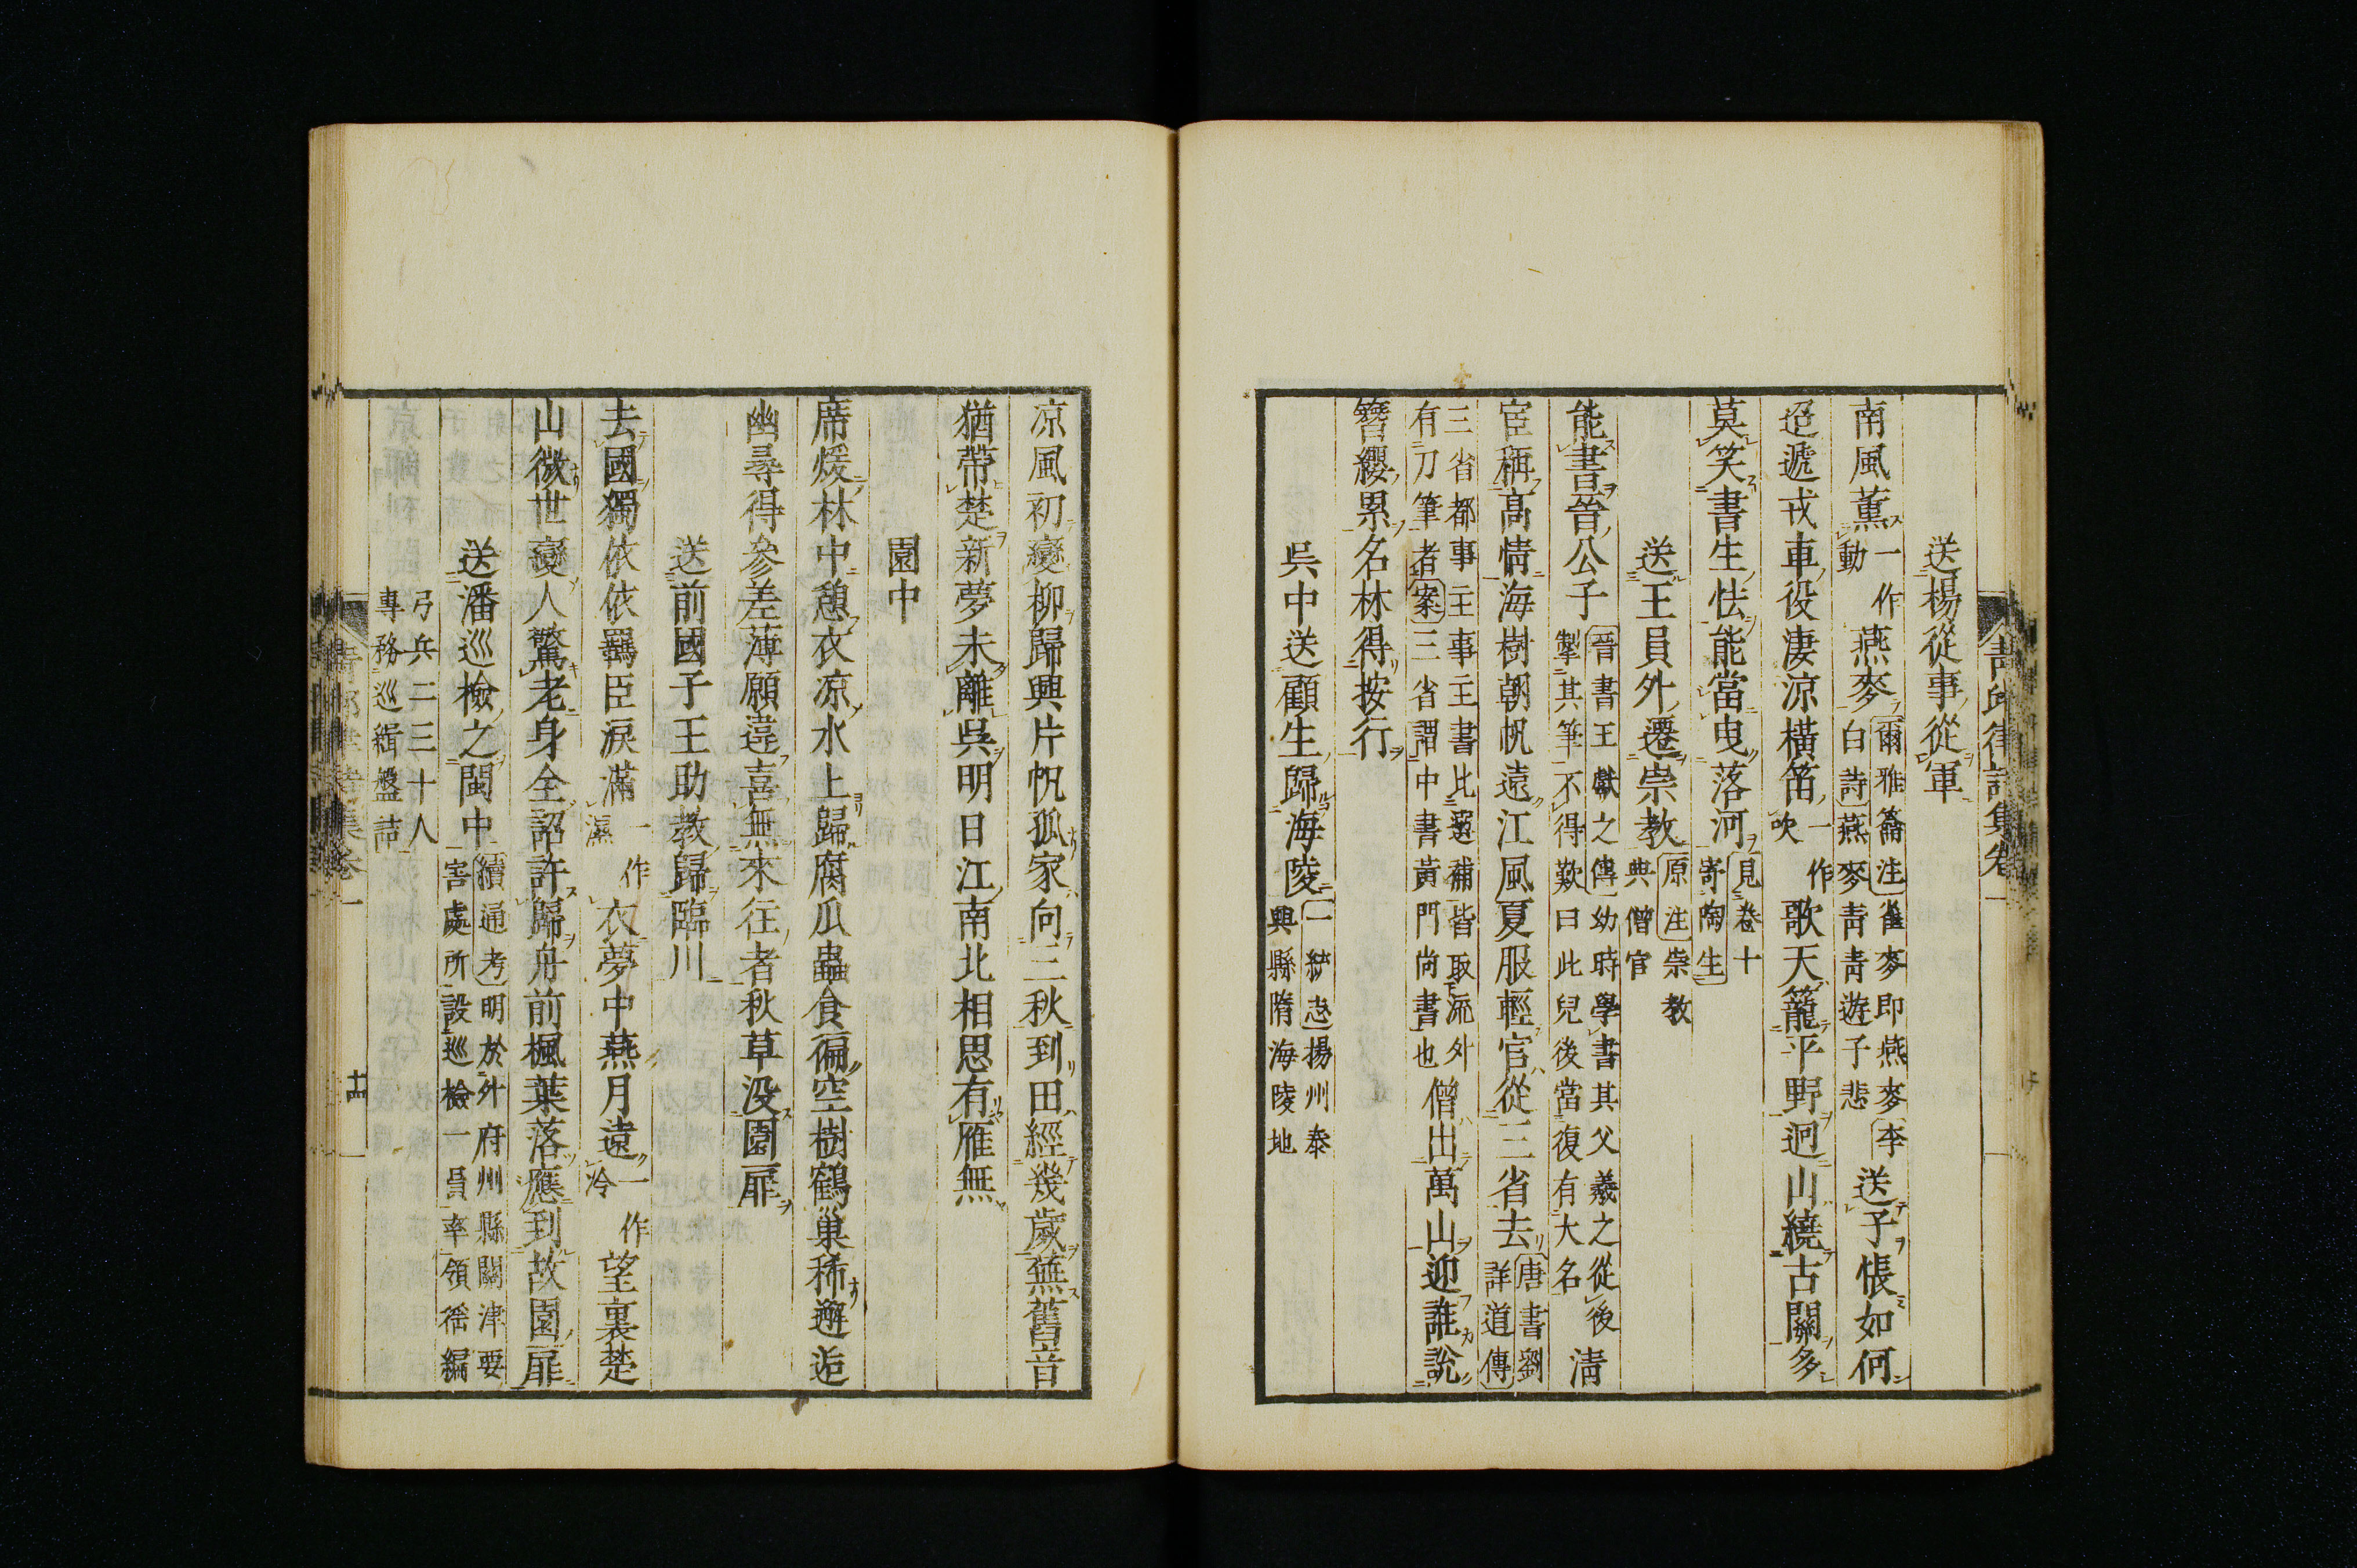 送楊從事從軍
南風薰一作動燕麥爾雅籥注雀麥即燕麥李白詩燕麥青青遊子悲送子悵如何
迢遞戎車役淒涼橫笛一作吹歌天籠平野迥山繞古關多
莫笑書生怯能當曳落河見卷十寄陶生
送王員外遷崇教原注崇教典僧官
能書晉公子晉書王獻之傳幼時學書其父羲之從後掣其筆不得歎曰此兒後當復有大名清
宦稱高情海樹朝帆遠江風夏服輕官從三省去唐書劉詳道傳
三省都事主事主書比選補皆取流外有刀筆者案三省謂中書黃門尚書也僧出萬山迎誰說
簪纓累名林得按行
吳中送顧生歸海陵一統志揚州泰興縣隋海陵地
凉風初變柳歸興片帆孤家向三秋到田經幾歲蕪舊音
猶帶楚新夢未離吳明日江南北相思有雁無
園中
席煖林中憩衣凉水上歸腐瓜蟲食徧空樹鶴巢稀邂逅
幽尋得參差薄願違喜無來往者秋草没園扉
送前國子王助教歸臨川
去國獨依依羈臣淚滿一作濕衣夢中燕月遠一作冷望裏楚
山微世變人驚老身全詔許歸舟前楓葉落應到故園扉
送潘巡檢之閩中續通考明於外府州縣關津要害處所設巡檢一員率領徭編
弓兵二三十人專務巡緝盤詰
青邱律詩集卷一
十四